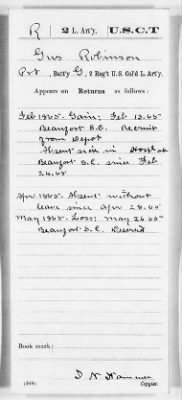 R | 2 L. Art'y. | U.S.C.T
Gus Robinson
Pvt., Batt'y G, 2 Reg't U.S. Col'd L. Art'y.
Appears on Returns as follows:
Feb 1865. Gain: Feb 13.65
Beaufort S.C. Recruit
from Depot
Absent sick in Hosp at
Beaufort S.C. since Feb
24.65
Apr 1865. Absent without
leave since Apr 28.65
May 1865. Loss: May 26.65
Beaufort S.C. Deserted
Book mark:
Copyist.